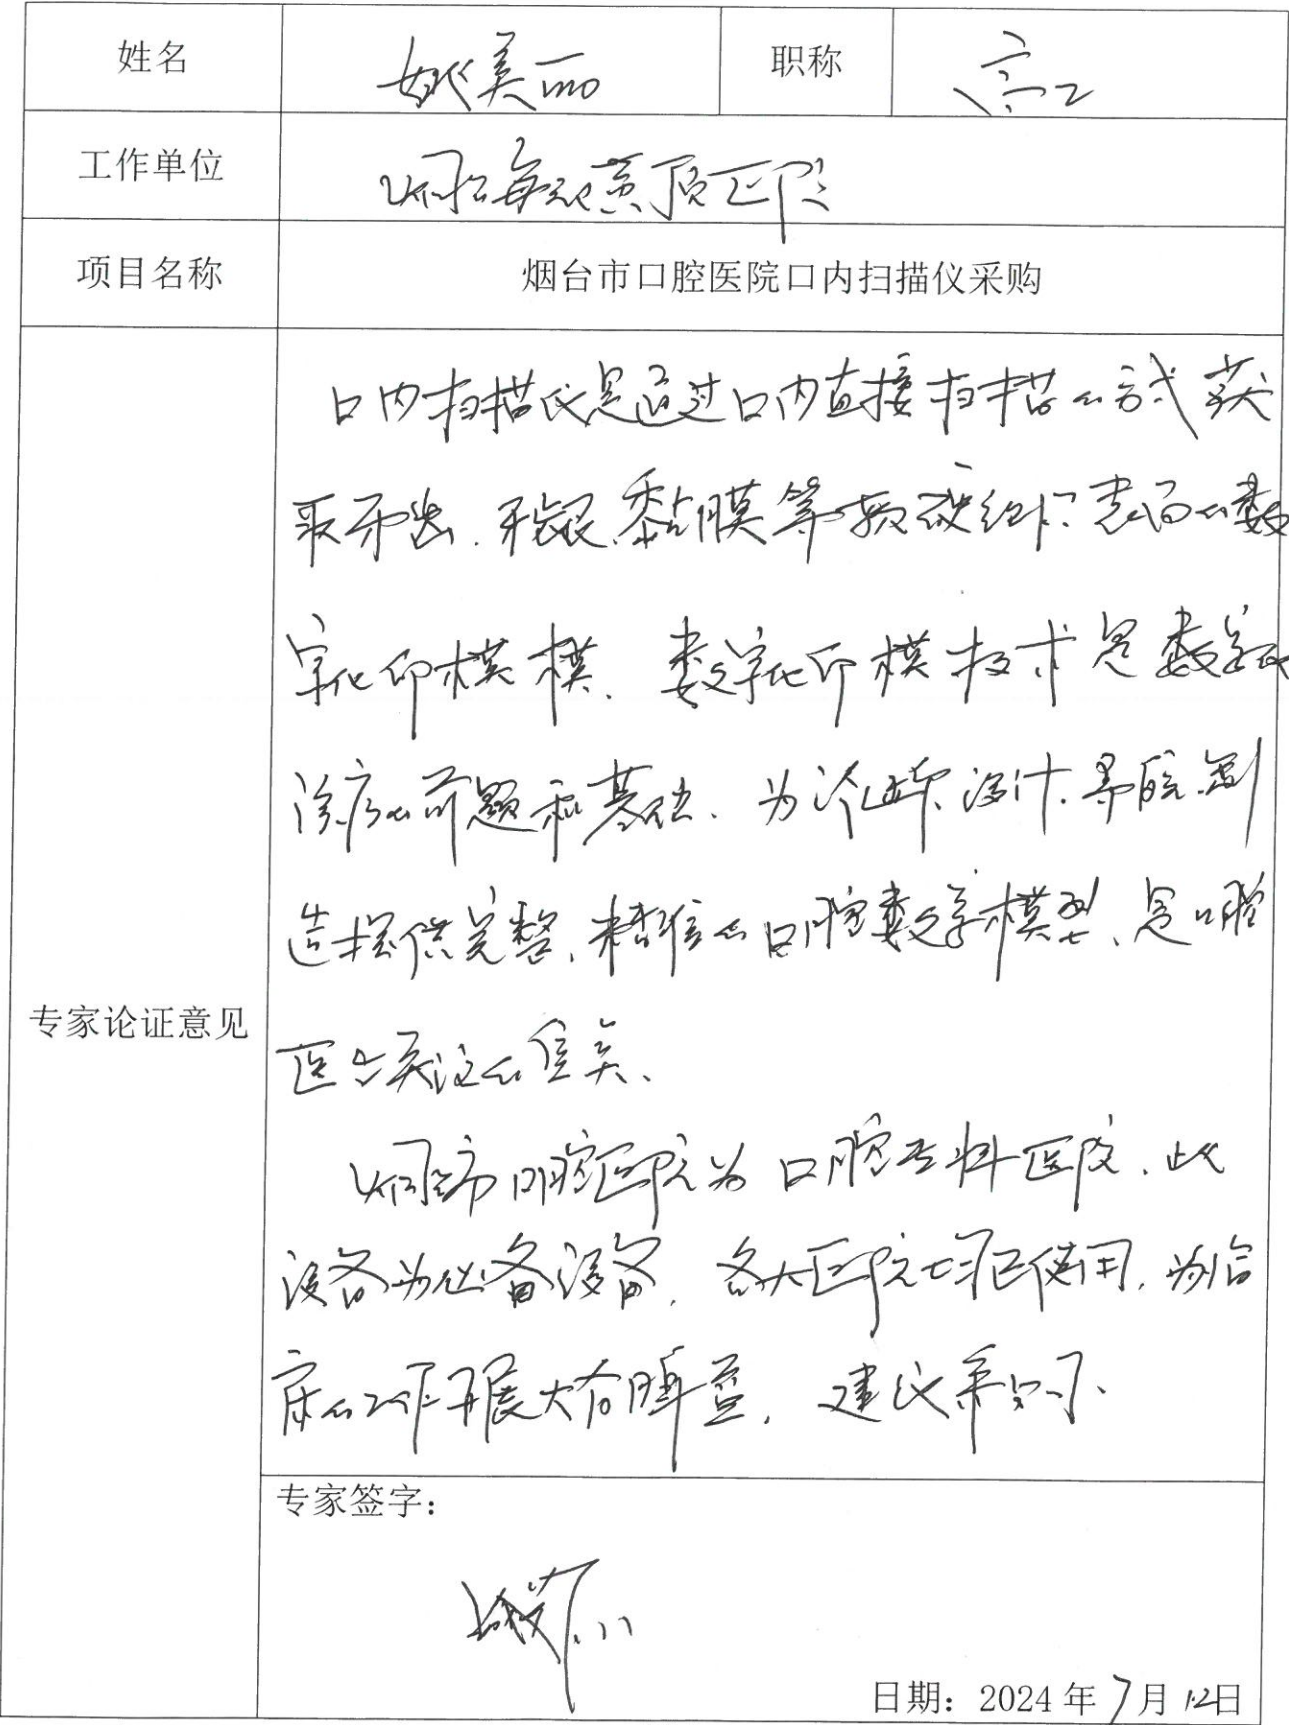 姓名 姚美丽 职称 高工
工作单位 烟台毓璜顶医院
项目名称 烟台市口腔医院口内扫描仪采购
口内扫描仪是通过口内直接扫描的方式获
取牙齿、牙龈、黏膜等软硬组织表面的数
字化印模模、数字化印模技术是数字化
诊疗的前题和基础、为诊断、设计、导航、制
造提供完整、精准的口腔数字模型、是口腔
专家论证意见
医生关注的焦点、
烟台市口腔医院为口腔专科医院、此
设备为必备设备、各大医院均已使用、为临
床的工作开展大有脾益、建议采购、
专家签字：
姚美丽
日期：2024年7月12日